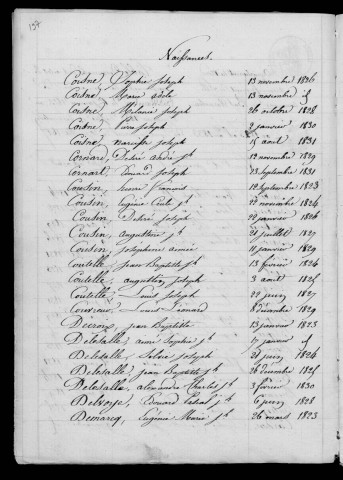 158
Naissances.
Coisne, Sophie Joseph 13 novembre 1826
Coisne, Marie adèle 13 novembre id
Coisne, Mélanie Joseph 26 octobre 1828
Coisne, Pierre Joseph 2 janvier 1830
Coisne, narcisse Joseph 15 août 1831
Cornard, Désiré andré Jh 12 novembre 1829
Cornart, Edouard Joseph 13 septembre 1831
Cousin, henri François 19 septembre 1823
Cousin, Eugénie Jh 27 novembre 1824
Cousin, Désiré Joseph 22 janvier 1826
Cousin, augustin Jh juillet 1827
Cousin, Joséphine aimée 11 janvier 1829
Coutelle, jean Baptiste Jh 13 février 1824
Coutelle, augustin Joseph 3 août 1825
Coutelle, Louis Joseph 22 juin 1827
Louis Léonard 8 décembre 1829
Decroix, jean Baptiste 13 janvier 1823
Delesalle, aimé Sophie Jh 7 janvier id
Delesalle, Joseph 21 juin 1824
Delesalle, jean Baptiste Jh 26 décembre 1825
Delesalle, alexandre Charles Jh 3 février 1830
Delvoye, Edouard Jh 6 juin 1828
Demarcq, Eugénie Marie Jh 26 mars 1823